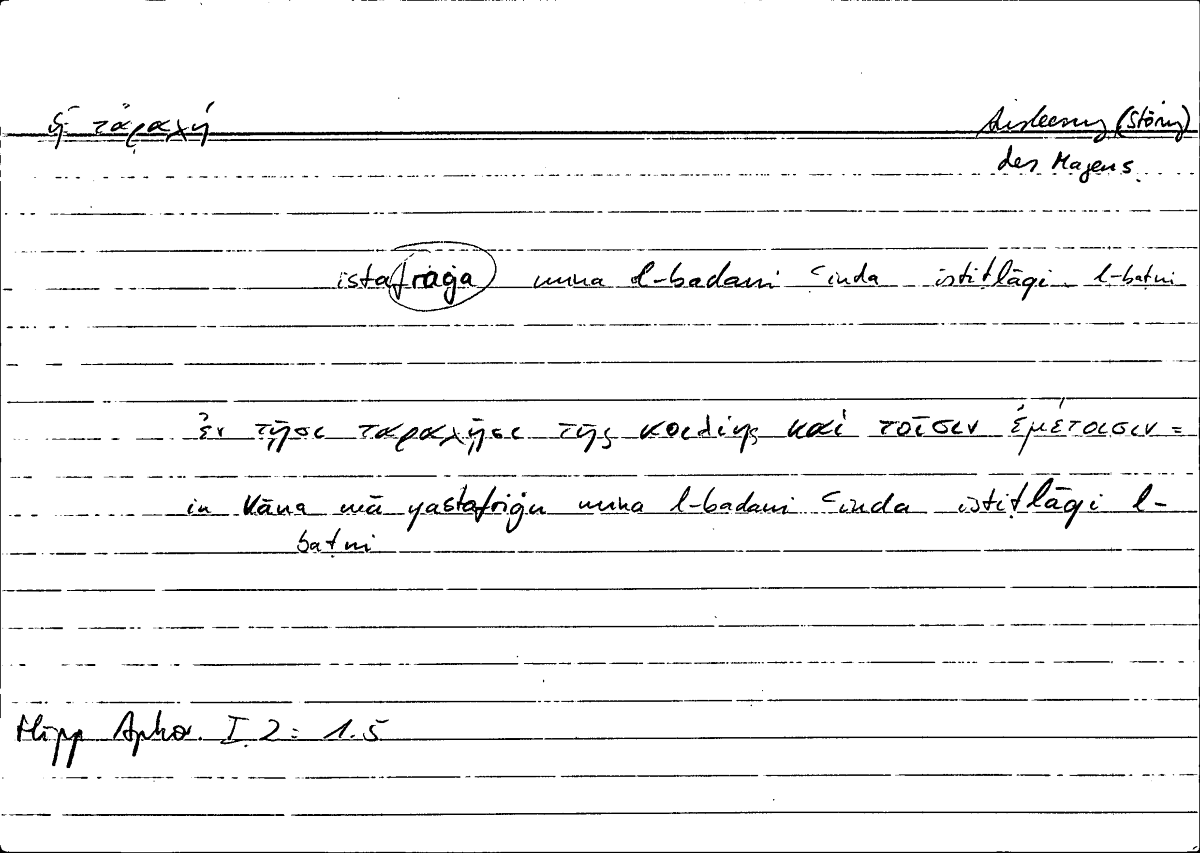 ἡ ταραχή
(Störung)
des Magens
istafraġa mina l-badani ʿinda istiṭlāqi l-baṭni
ἐν τῇσι ταραχῇσι τῆς κοιλίης καὶ τοῖσιν ἐμέτοισιν =
in kāna mā yastafriġu mina l-badani ʿinda istiṭlāqi l-
baṭni
Hipp Aphor. I 2 = 1.5